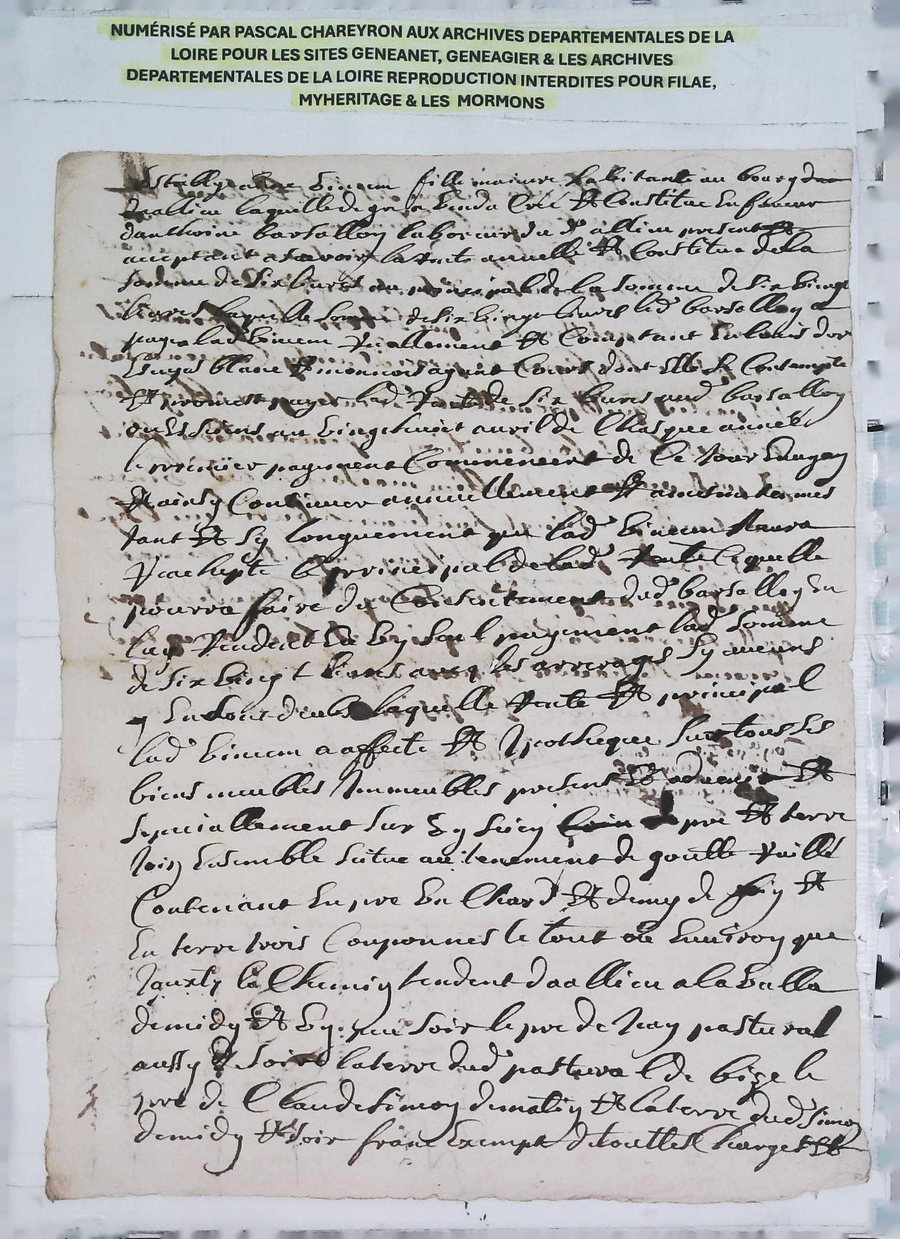 NUMÉRISÉ PAR PASCAL CHAREYRON AUX ARCHIVES DEPARTEMENTALES DE LA
LOIRE POUR LES SITES GENEANET, GENEAGIER & LES ARCHIVES
DEPARTEMENTALES DE LA LOIRE REPRODUCTION INTERDITES POUR FILAE,
MYHERITAGE & LES MORMONS
fille habitante au bourg
laquelle de gré Constitue
danthoine barsalloy laboreur du d. allieu present
acceptant a scavoir la rente annuelle Et Constitue de la
somme de six livres au principal de la somme de six vingt
livres laquelle somme de six vingt livres led. barsalloy a
paye a lad. Et Comptant En louis dor
Escus blanc monnoie ayant Cours dont Elle Contempte
Et promet payer lad. Rente de six livres aud. barsalloy
ou Es siens au vingt huict avril de Chasque année
le premier payement Commencent de Ce Jour En ung an
Et ainsy Continuer annuellement Et a mesme termes
tant Et Sy longuement que lad. Naura
Reachepté le principal de lad. Rente Ce quelle
pourra faire du Consentement dud. barsalloy En
luy Rendent En Ung Seul payement lad. somme
de six vingt livres avec les arrerages Sy aucuns
y En Sont deubs laquelle Rente Et principal
lad. a affecté Et Ipothequé Sur tous Ses
biens meubles Immeubles presents Et advenir Et
specialement Sur Ung pre Et terre
Joing Ensemble Situe au tenement de goutte
Contenant En pre Un Chard Et demy de foin Et
En terre trois Couponnes le tout ou Environ que
Jouxte le Chemin tendent daallieu a la
de midy Et le pre de Jean pastural
aussy de Soir la terre dud. pastural de bize le
pre de Claude Simon de matin Et la terre dud. Simon
de midy Et Soir franc Exempt de touttes Charges Et